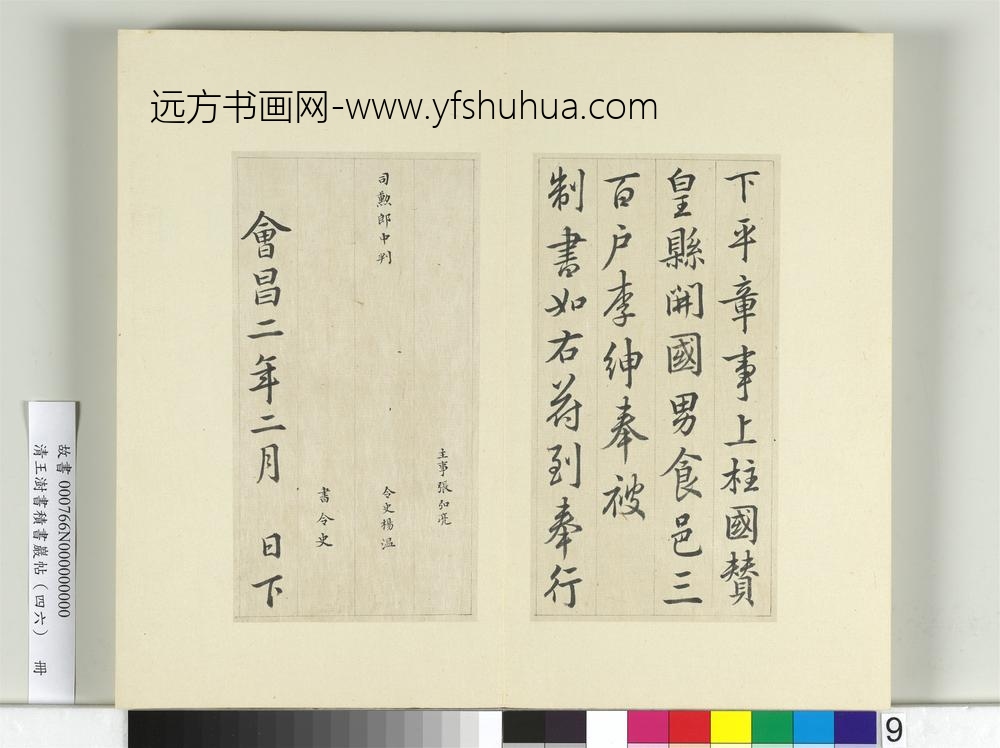 远方书画网-www.yfshuhua.com
下平章事上柱國贊
皇縣開國男食邑三
百户李紳奉被
制書如右苻到奉行
主事張弘亮
司勲郎中判
令史楊温
書令史
會昌二年二月 日下
故書 000766N000000000
清王澍書積書巖帖（四六） 冊
9